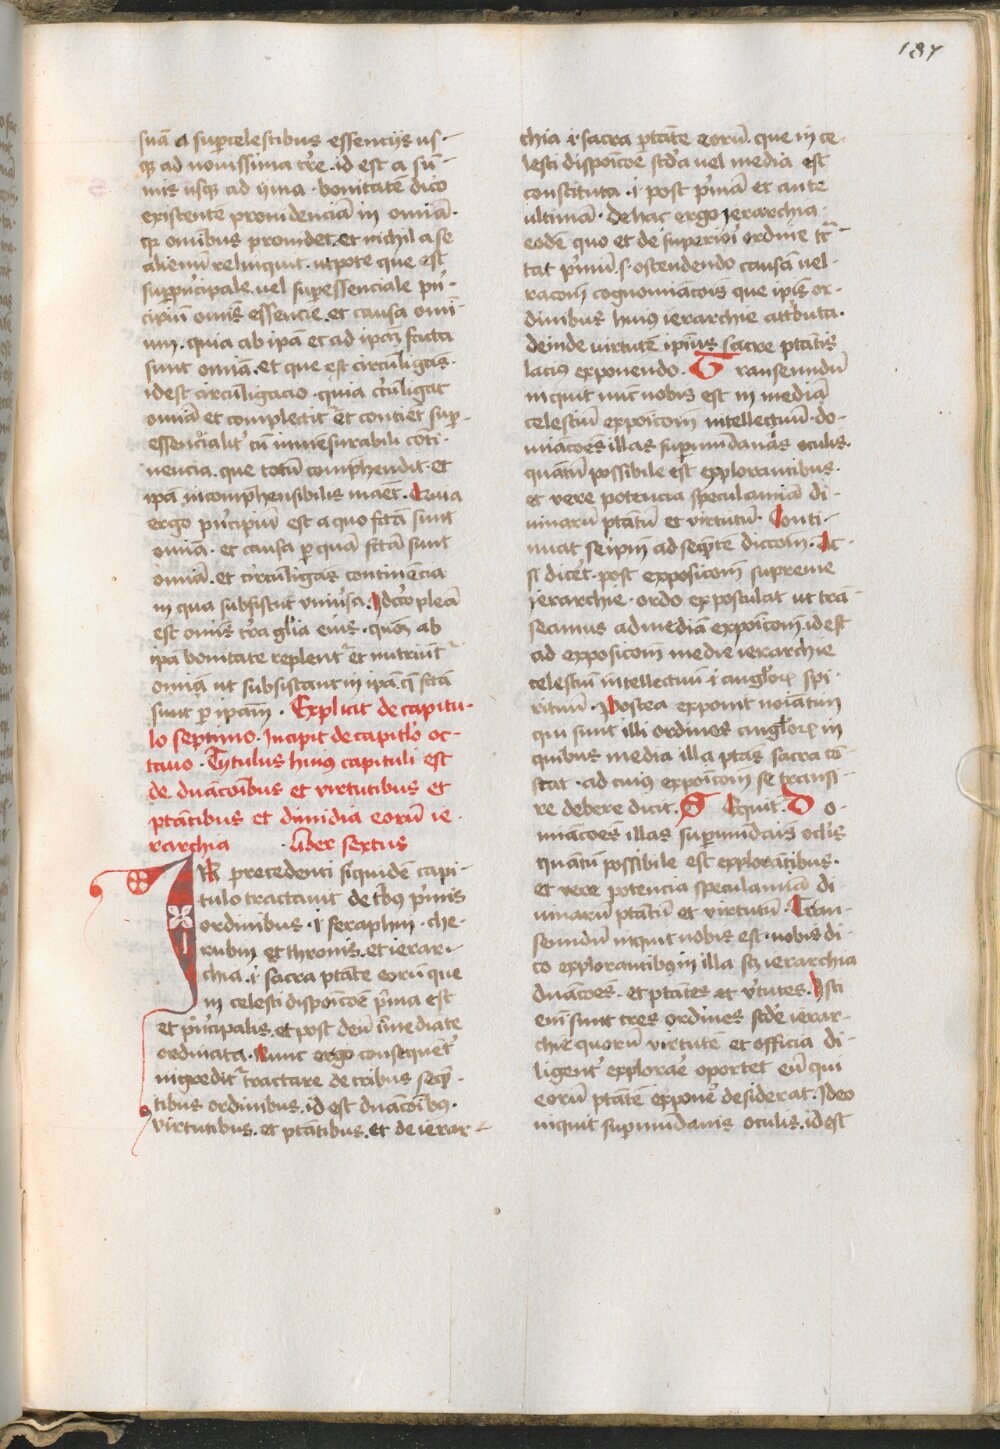 187
suā a suꝑcelestibus essencijs us-
qꝫ ad nouissima tr̄e . id est a sū-
mis usqꝫ ad yma . bonitatē dico
existentē prouidenciā in omīa .
qꝫ omībus prouidet . et nichil a se
alienū relinquit . utpote que est
suꝑp̄ncipale . uel suꝑessenciale pn̄-
cipiū omīs essencie . et causa omī-
um . quia ab ipā et ad ipam̄ facta
sunt omīa . et que est circūligās .
id est circūligacio . quia cīrūligat
omīa et complectit̄ et contiet̄ suꝑ-
essencialit̄ cū inmēsurabili cōti-
nencia . que totū comp̄hendit . et
ipā incomp̄hensibilis maēt . Quia
ergo pn̄cipiū est a quo fctā sunt
omīa . et causa ꝑ quā fctā sunt
omīa . et circūligās continēcia
in qua subsistūt uniūsa . Idcc̄o plēa
est omīs tr̄a glīa eius . qm̄ ab
ipā bonitate replent̄ et nutriūt̄
omīa ut subsistant in ipā . q̄ fctā
sunt ꝑ ipam̄ . Explicit de capitu-
lo septimo . Incipit de capitl̄o oc-
tauo . Tytulus huius capituli est
de dn̄acōibus et virtutibus et
ptātibus et dimidia eorū ie-
rarchia . Liber sextus
IN precedenti siquidē capi-
tulo tractauit de tbꝫ pīmis
ordinibus . i seraphin . che-
rubin et thronis . et ierar-
chia . i sacra ptāte eorū que
in celesti disposicōe pīma est
et pīncipalis . et post deū īmediate
ordinata . Nunc ergo consequēt̄
ingredit̄ tractare de tribus seqn̄-
tibus ordinibus . id est dn̄acōibꝫ .
virtutibus . et ptātibus . et de ierar-
chia . i sacra ptāte eorū . que in ce-
lesti disposicōe scd̄a uel media est
constituta . i post pīmā et ante
ultimā . de hac ergo ierarchia
eodē quo et de superiori ordine tr̄-
tat pīmū . s . ostendendo causā uel
racōm cognomīacōis que ip̄is or-
dinibus huiꝫ ierarchie attbuta .
deinde virtutē ipīus sacre ptātis
laciꝫ exponendo . Transeundū
inquit nūc nobis est in mediā
celestiū exposicōm intellectuū . do-
mīacōes illas suꝑmūdanas oculis .
quātū possibile est explorantibus .
et vere potencia speculamīa di-
uinarū ptātū et virtutū . Conti-
nuat se ipm̄ ad seqn̄tē diccōm . Ac
si dicēt . post exposicōm supreme
ierarchie . ordo expostulat ut trā-
seamus ad mediā exposicōm . id est
ad exposicōm medie ierarchie
celestiū intellectuū . i angl̄oꝝ spi-
rituū . Postea exponit noīatim
qui sunt illi ordines angl̄oꝝ in
quibus media illa ptās sacra cō-
stat . ad cuius exposicōm se transi-
re debere dicit . Sequit̄ . Do-
mīacōes illas suꝑmūdāis oclīs
quātū possibile est explorātibus .
et vere potencia speculamīa di-
uinarū ptātū et virtutū . Tran-
seundū inquit nobis est . nobis di-
co explorantibꝫ in illa sꝫ ierarchia
dn̄acōes . et ptātes et v̄tutes . Isti
eni sunt tres ordines scd̄e ierar-
chie quorū virtutē et officia di-
ligent̄ explorar̄e oportet eū qui
eorū ptātē expon̄e desiderat . Ideo
inquit suꝑmūdanis oculis . id est